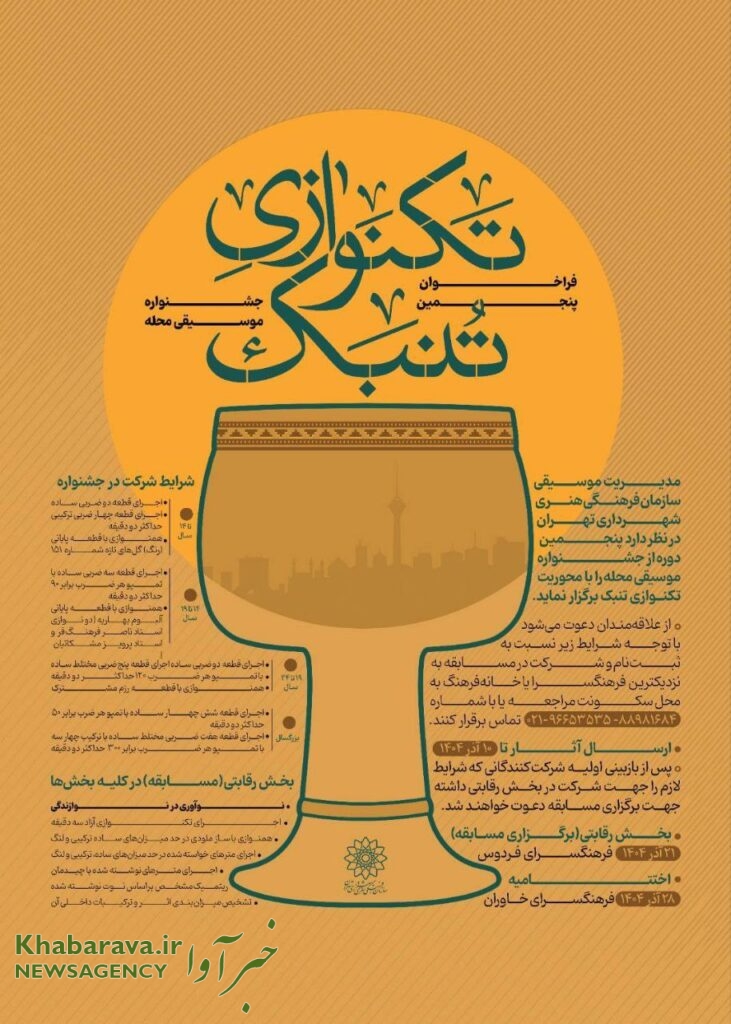 تکنوازیِ
تُنبک
فراخوان
پنجمین
جشنواره
موسیقی محله
مدیریت موسیقی
سازمان فرهنگی هنری
شهرداری تهران
در نظر دارد پنجمین
دوره از جشنواره
موسیقی محله را با محوریت
تکنوازی تنبک برگزار نماید.
از علاقه‌مندان دعوت می‌شود
با توجه شرایط زیر نسبت به
ثبت‌نام و شرکت در مسابقه به
نزدیکترین فرهنگسرا یا خانه‌فرهنگ به
محل سکونت مراجعه یا با شماره
۰۲۱-۹۶۶۵۳۵۳۵-۸۸۹۸۱۶۸۴ تماس برقرار کنند.
ارسال آثار تا ۱۰ آذر ۱۴۰۴
پس از بازبینی اولیه شرکت‌کنندگانی که شرایط
لازم را جهت شرکت در بخش رقابتی داشته
جهت برگزاری مسابقه دعوت خواهند شد.
بخش رقابتی(برگزاری مسابقه)
۲۱ آذر ۱۴۰۴ فرهنگسرای فردوس
اختتامیه
۲۸ آذر ۱۴۰۴ فرهنگسرای خاوران
شرایط شرکت در جشنواره
تا ۱۴
سال
اجرای قطعه دو ضربی ساده
اجرای قطعه چهار ضربی ترکیبی
حداکثر دو دقیقه
همنوازی با قطعه پایانی
(رنگ) گل‌های تازه شماره ۱۵۱
۱۴ تا ۱۹
سال
اجرای قطعه سه ضربی ساده با
تمپو هر ضرب برابر ۹۰
حداکثر دو دقیقه
همنوازی با قطعه پایانی
آلبوم بهاریه (دو نوازی
استاد ناصر فرهنگ‌فر و
استاد پرویز مشکاتیان
۱۹ تا ۲۴
سال
اجرای قطعه دو ضربی ساده اجرای قطعه پنج ضربی مختلط ساده
با تمپو هر ضرب ۱۲۰ حداکثر دو دقیقه
همنوازی با قطعه رزم مشترک
بزرگسال
اجرای قطعه شش چهار ساده با تمپو هر ضرب برابر ۵۰
حداکثر دو دقیقه
اجرای قطعه هفت ضربی مختلط ساده با ترکیب چهار سه
با تمپو هر ضرب برابر ۳۰۰ حداکثر دو دقیقه
بخش رقابتی(مسابقه) در کلیه بخش‌ها
نوآوری در نوازندگی
اجرای تکنوازی آزاد سه دقیقه
همنوازی با ساز ملودی در حد میزان‌های ساده ترکیبی و لنگ
اجرای مترهای خواسته شده در حد میزان‌های ساده، ترکیبی و لنگ
اجرای مترهای نوشته شده با چیدمان
ریتمیک مشخص بر اساس نوت نوشته شده
تشخیص میزان‌بندی اثر و ترکیبات داخلی آن
Khabarava.ir
NEWSAGENCY
خبر آوا